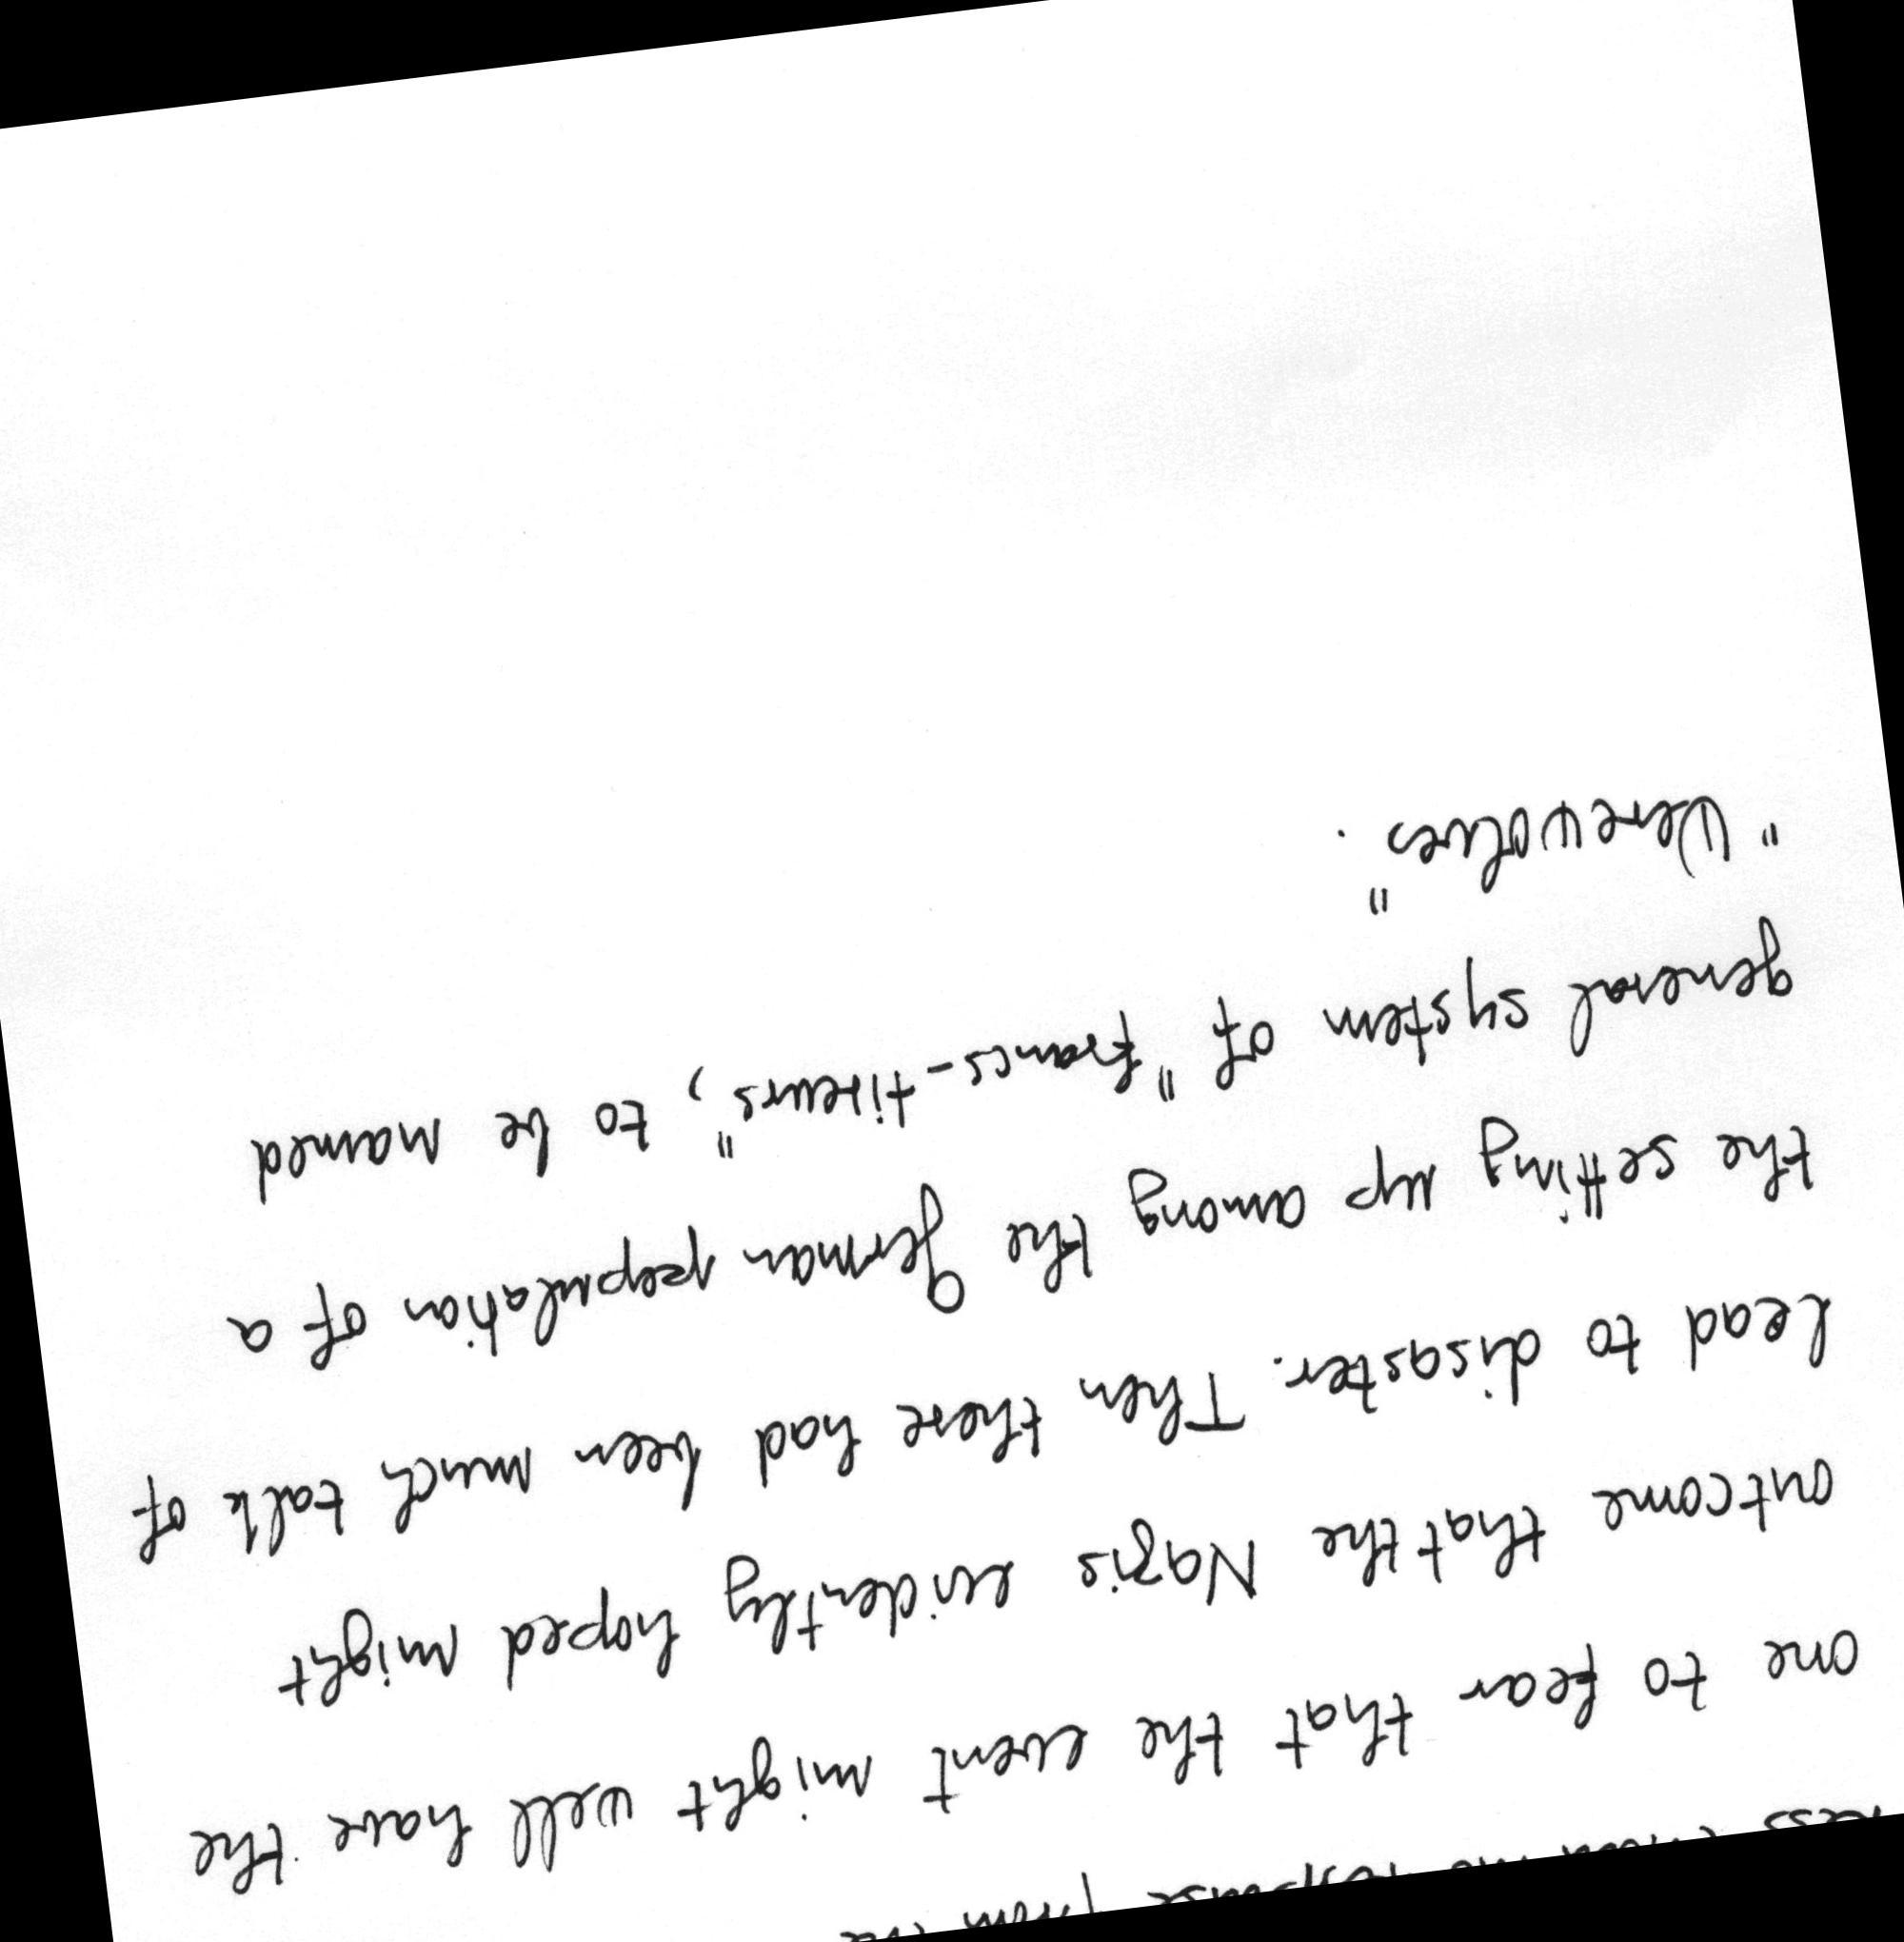 response from the
one to fear that the event might well have the
outcome that the Nazis evidently hoped might
lead to disaster. Then there had been much talk of
the setting up among the German population of a
general system of "francs-tireurs", to be named
"Werewolves".